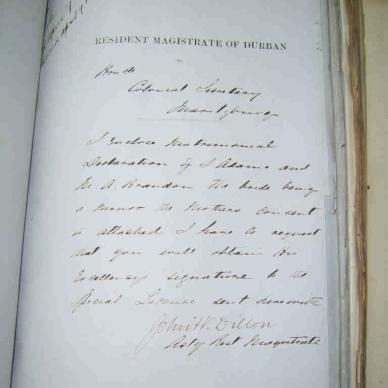 RESIDENT MAGISTRATE OF DURBAN
Colonial Secretary
Maritzburg
I enclose Matrimonial
Declaration of J Adams and
M. A. Brandon the bride being
a minor the Mothers consent
is attached I have to request
that you will obtain His
Excellency's signature to the
Special License sent herewith
John W Dillon
Actg Rest Magistrate